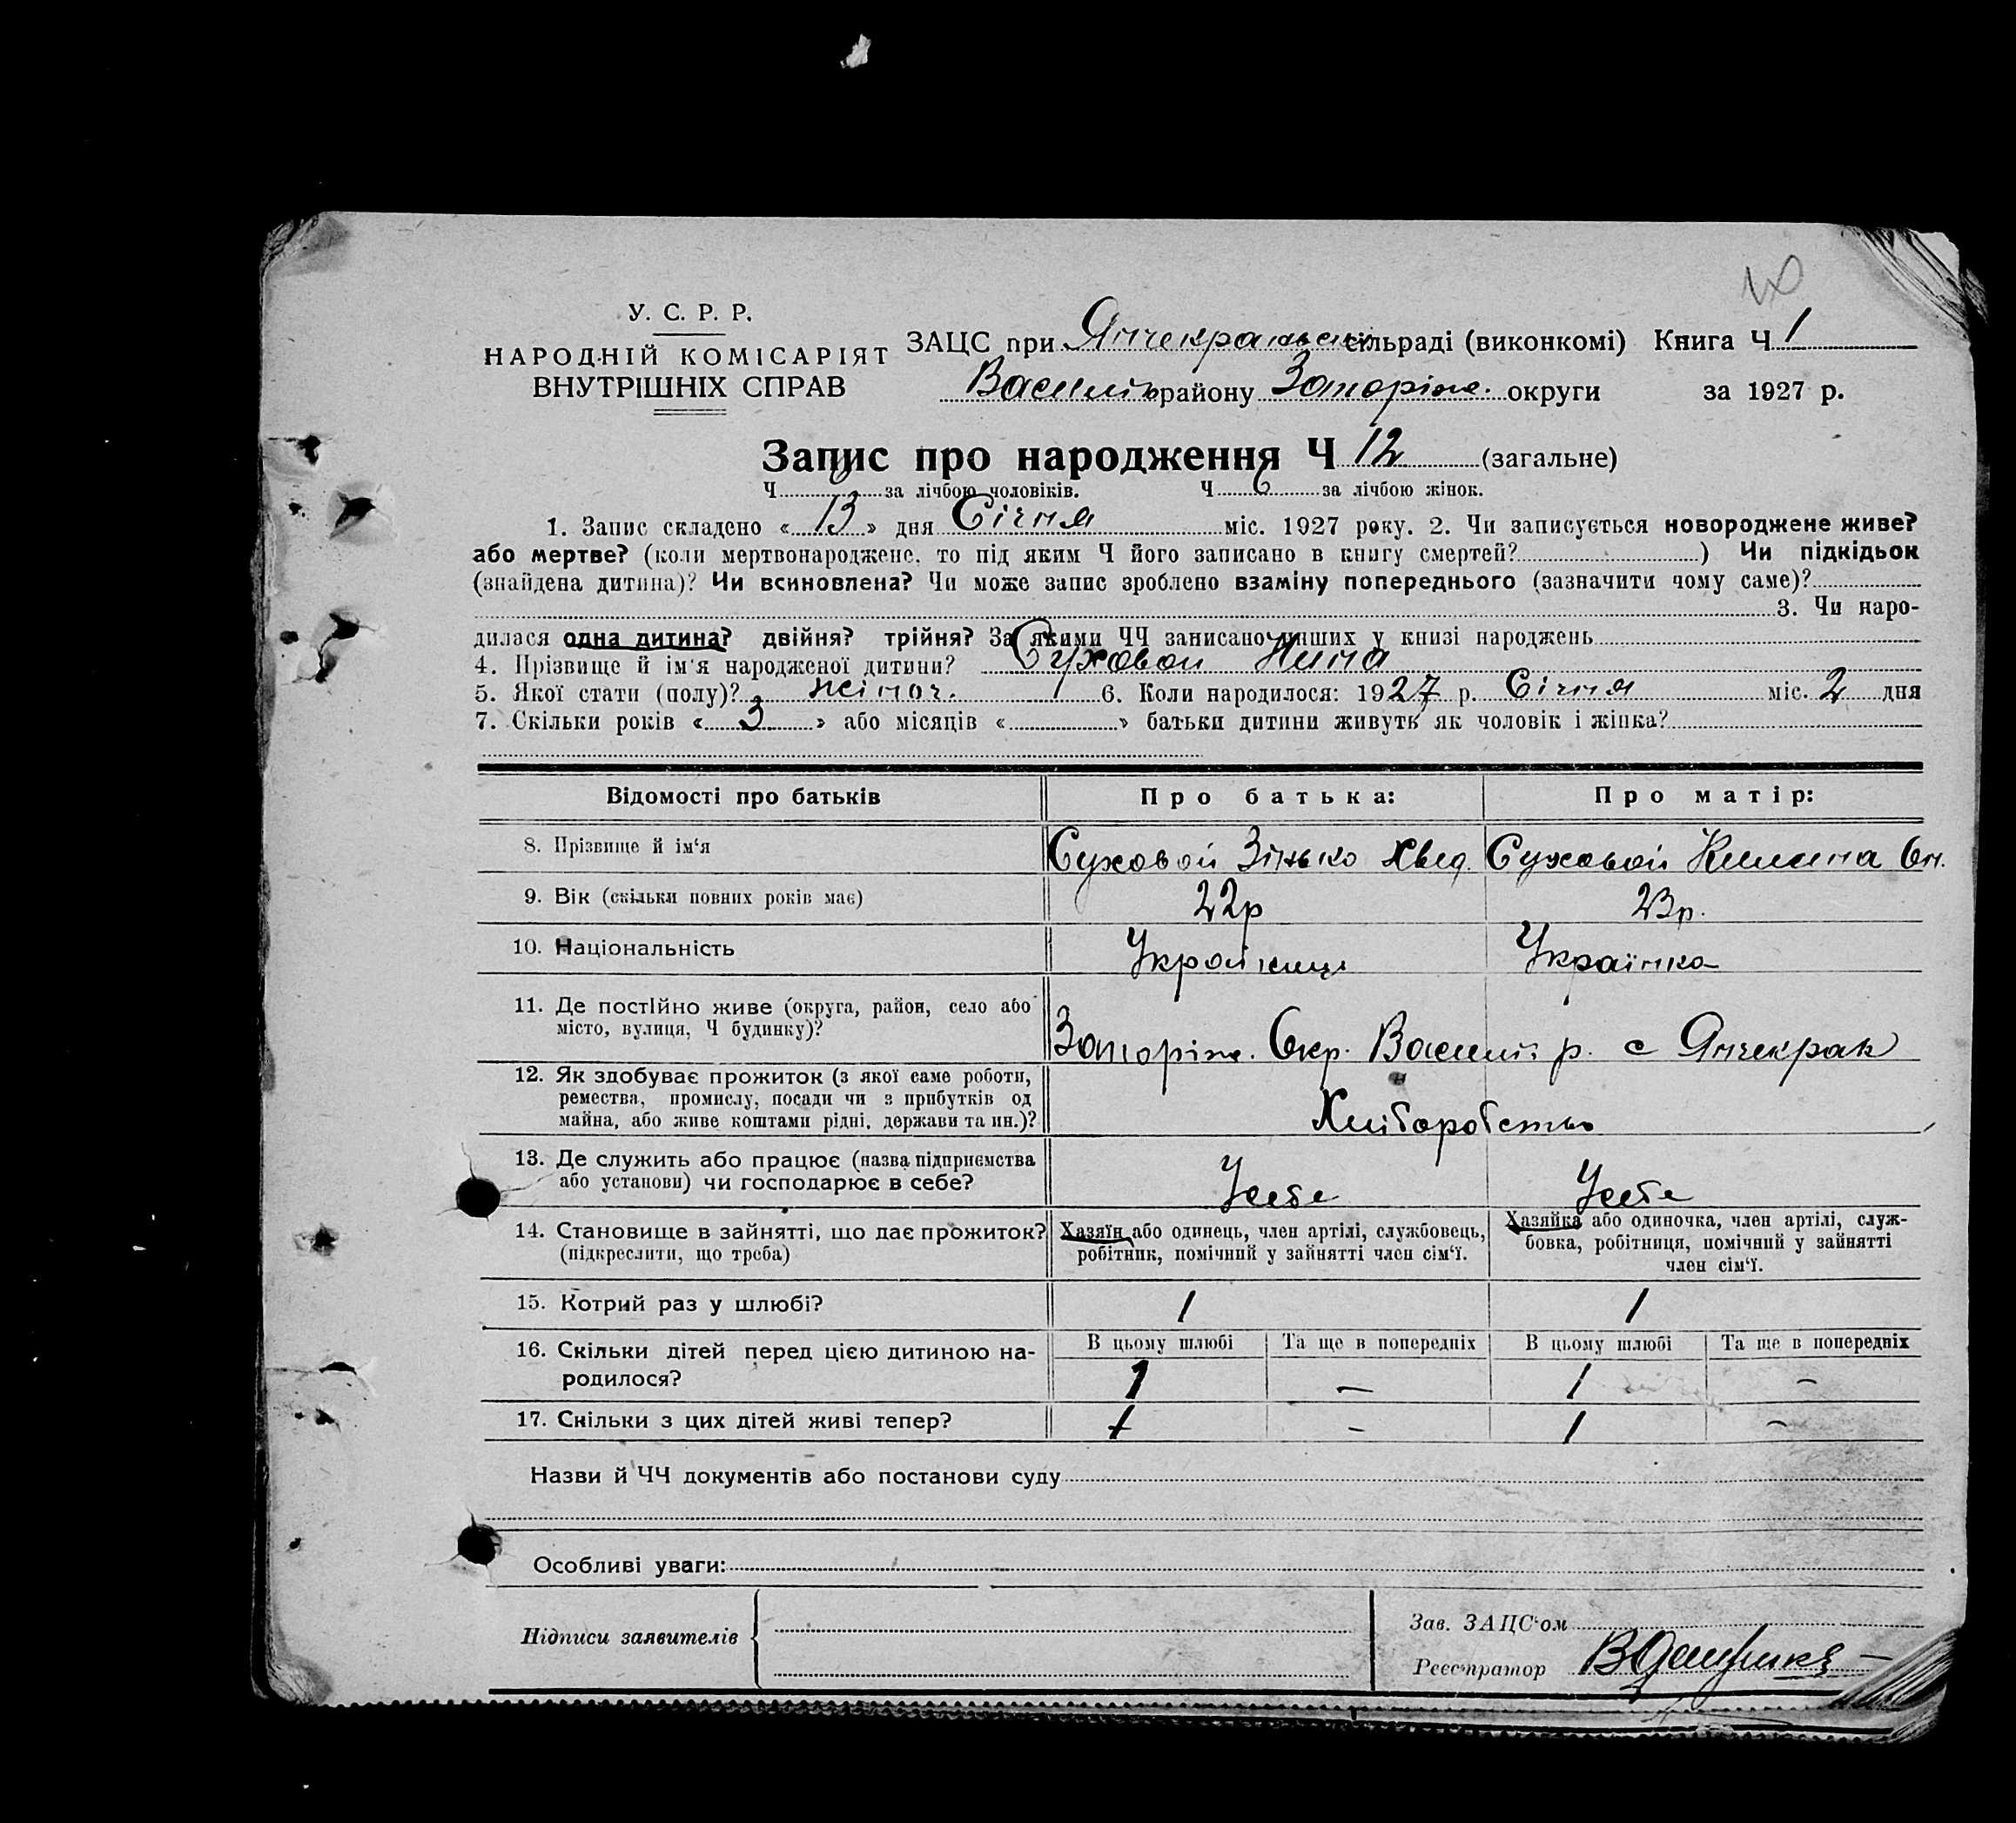 У. С. Р. Р.
НАРОДНІЙ КОМІСАРІЯТ
ВНУТРІШНІХ СПРАВ
ЗАЦС при Янчекракськ сільраді (виконкомі) Книга Ч 1
Василів району Запоріж. округи за 1927 р.
Запис про народження Ч 12 (загальне)
Ч за лічбою чоловіків. Ч 6 за лічбою жінок.
1. Запис складено «13» дня Січня міс. 1927 року. 2. Чи записується новороджене живе?
або мертве? (коли мертвонароджене, то під яким Ч його записано в книгу смертей? ) Чи підкідьок
(знайдена дитина)? Чи всиновлена? Чи може запис зроблено взаміну попереднього (зазначити чому саме)?
3. Чи наро-
дилася одна дитина? двійня? трійня? За якими ЧЧ записано инших у книзі народжень
4. Прізвище й ім'я народженої дитини? Суховой Нина
5. Якої стати (полу)? жіноч. 6. Коли народилося: 1927 р. Січня міс. 2 дня
7. Скільки років «3» або місяців « » батьки дитини живуть як чоловік і жінка?
Відомості про батьків Про батька: Про матір:
8. Прізвище й ім'я Суховой Зінько Хвед. Суховой Килина
9. Вік (скільки повних років має) 22р 23р.
10. Національність Українець Українка
11. Де постійно живе (округа, район, село або
місто, вулиця, Ч будинку)? Запоріж. Окр. Василів р. с Янчекрак
12. Як здобуває прожиток (з якої саме роботи,
ремества, промислу, посади чи з прибутків од
майна, або живе коштами рідні, держави та ин.)? Хліборобство
13. Де служить або працює (назва підприємства
або установи) чи господарює в себе? Усебе Усебе
14. Становище в зайнятті, що дає прожиток? Хазяїн або одинець, член артілі, службовець, Хазяйка або одиночка, член артілі, служ-
(підкреслити, що треба) робітник, помічний у зайнятті член сім'ї. бовка, робітниця, помічний у зайнятті
член сім'ї.
15. Котрий раз у шлюбі? 1 1
16. Скільки дітей перед цією дитиною на- В цьому шлюбі Та ще в попередніх В цьому шлюбі Та ще в попередніх
родилося? 1 – 1 –
17. Скільки з цих дітей живі тепер? 1 – 1 –
Назви й ЧЧ документів або постанови суду
Особливі уваги:
Підписи заявителів
Зав. ЗАЦС'ом
Реєстратор